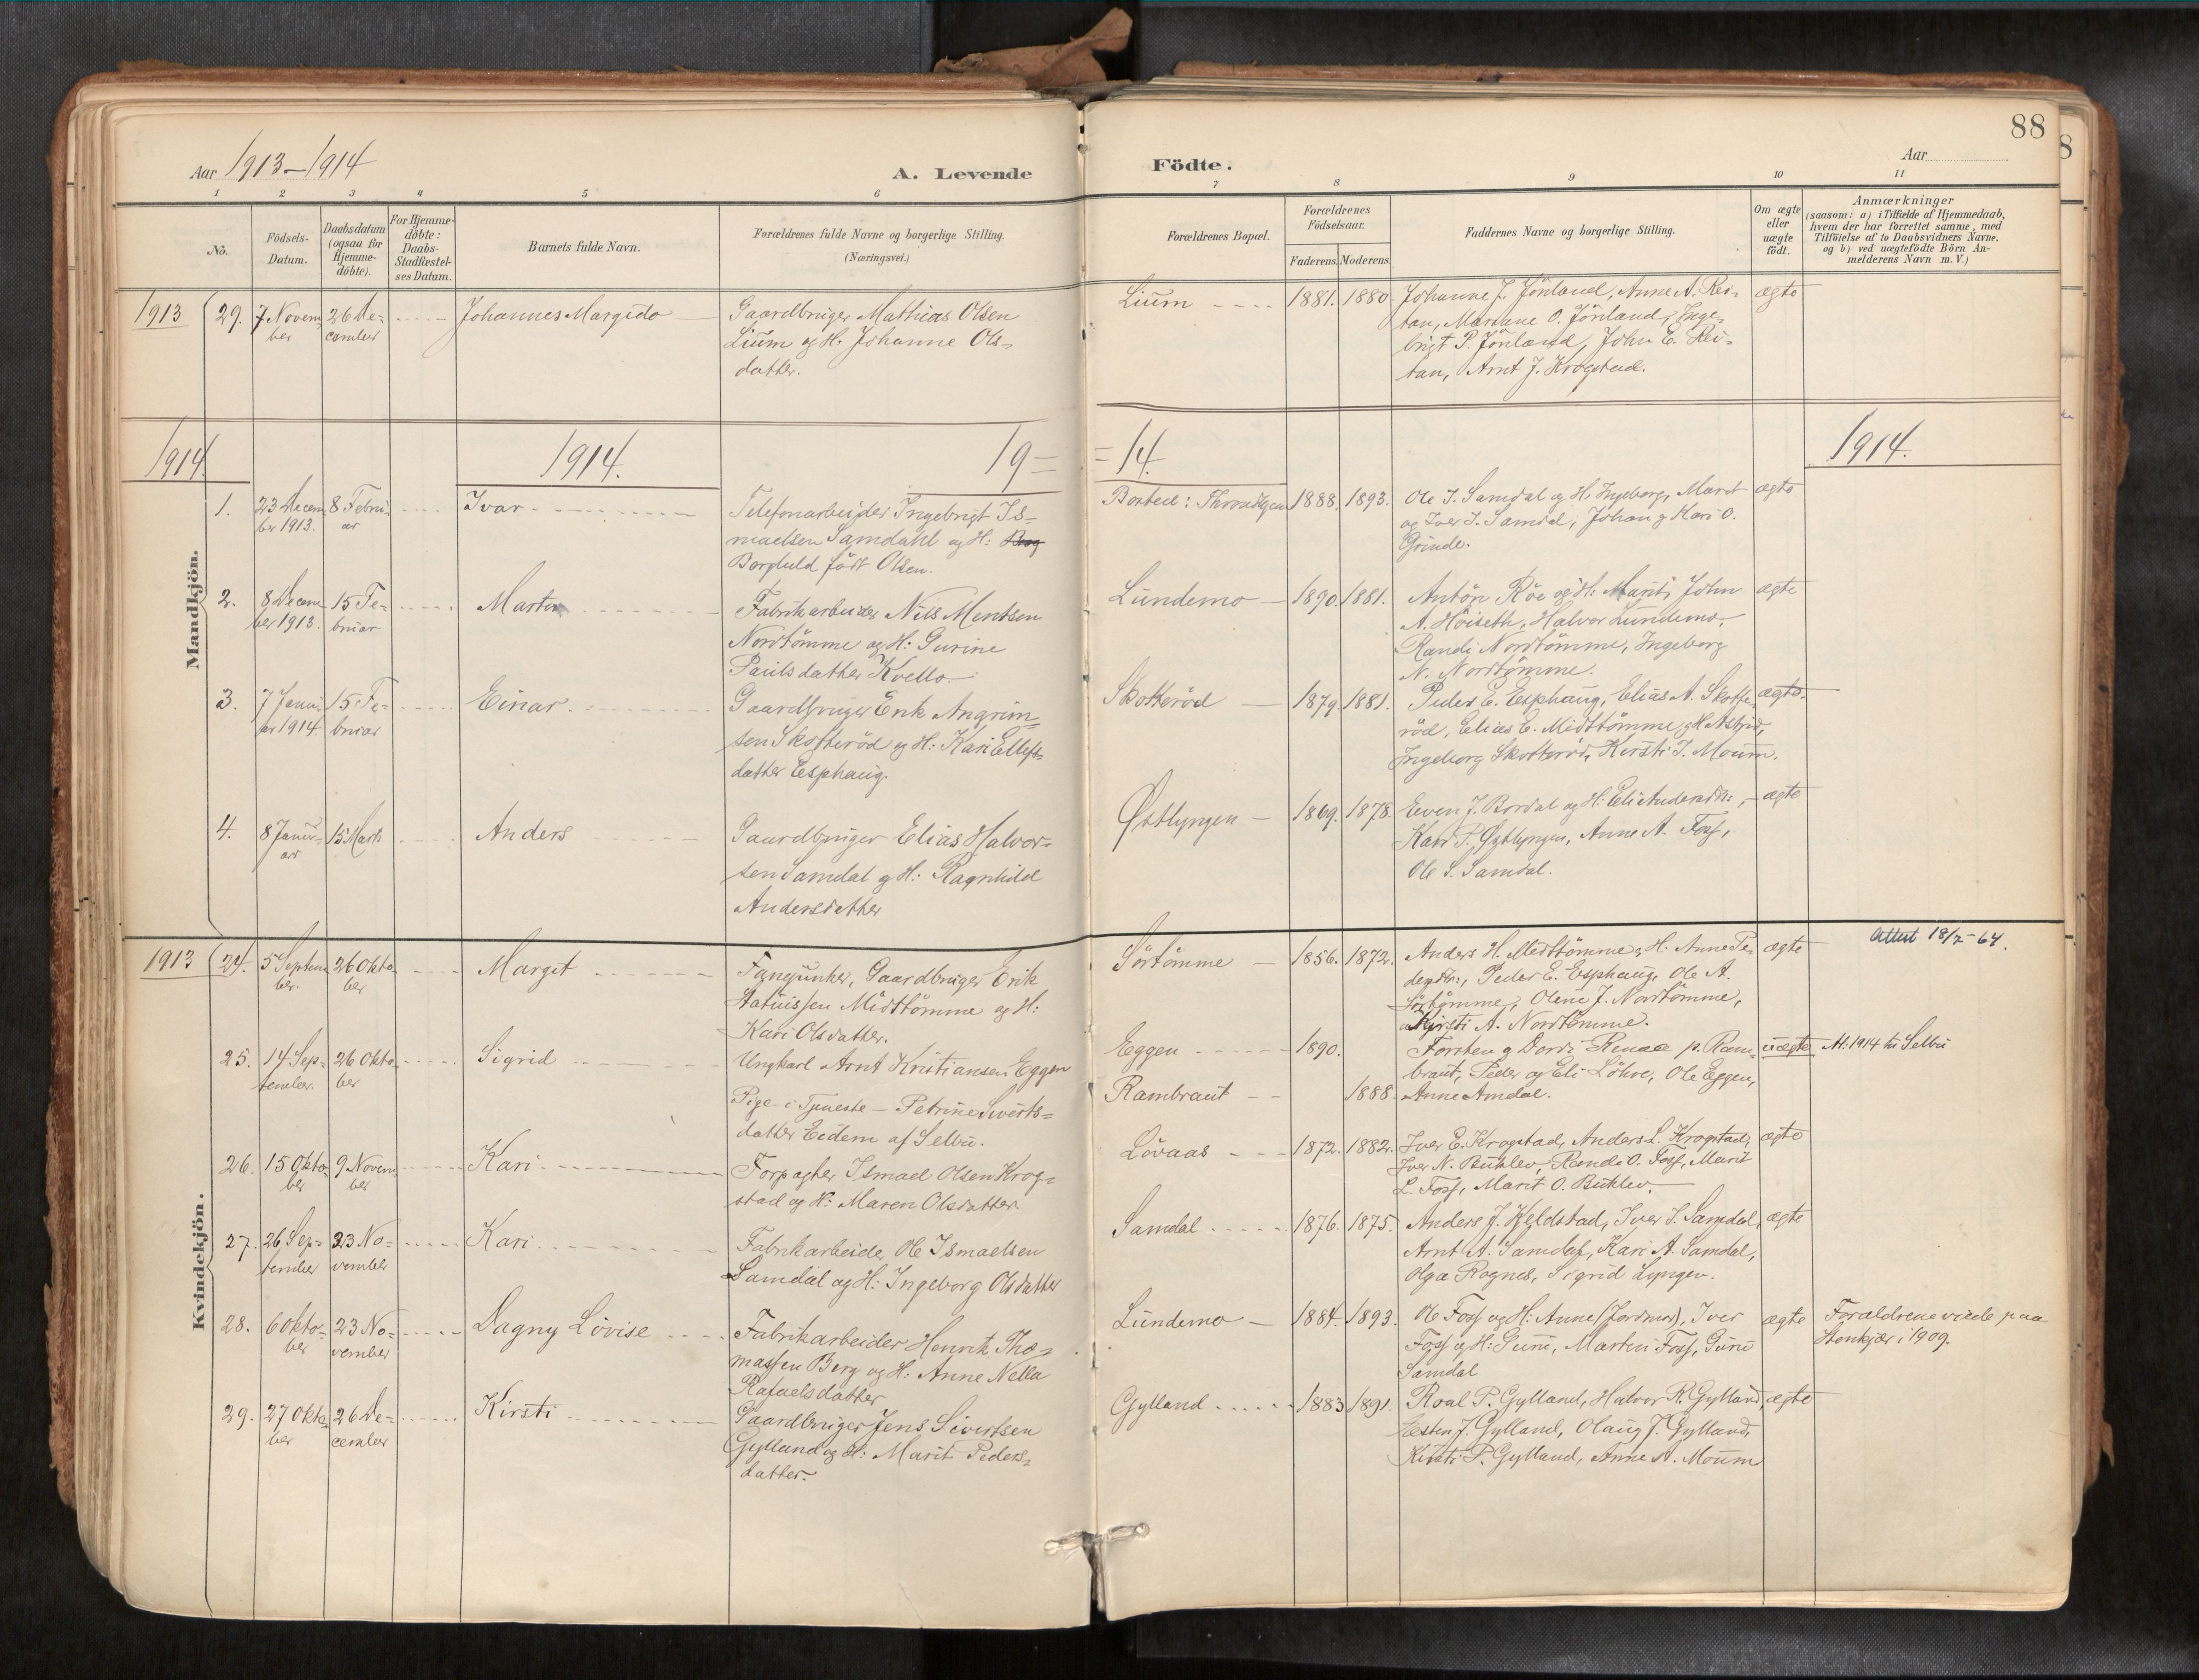 88
Aar 1913–1914
A. Levende
Födte.
Aar
1 2 3 4 5 6 7 8 9 10 11
No.
Födsels-
Datum.
Daabsdatum
(ogsaa for
Hjemme-
döbte).
For Hjemme-
döbte:
Daabs-
Stadfæstel-
ses Datum.
Barnets fulde Navn.
Forældrenes fulde Navne og borgerlige Stilling.
(Næringsvei.)
Forældrenes Bopæl.
Forældrenes
Födselsaar.
Faderens. Moderens.
Faddernes Navne og borgerlige Stilling.
Om ægte
eller
uægte
födt.
Anmærkninger
(saasom: a) i Tilfælde af Hjemmedaab,
hvem der har forrettet samme, med
Tilföielse af to Daabsvidners Navne,
og b) ved uægtefödte Börn An-
melderens Navn m. V.)
1913
29. 7 Novem-
ber
26 De-
cember
Johannes Margido
Gaardbruger Mathias Olsen
Lium og H. Johanne Ols-
datter.
Lium
1881. 1880.
Johanne J. Jönland, Anne A. Rei-
tan, Mariane O. Jönland, Inge-
brigt P. Jönland, John E. Rei-
tan, Arnt J. Krogstad.
ægte
1914 1914. 19= =14. 1914.
Mandkjön.
1. 23 Decem-
ber 1913.
8 Febru-
ar
Ivar
Telefonarbeider Ingebrigt Is-
maelsen Samdahl og H:
Borghild födt Olsen.
Bosted: Throndhjem
1888. 1893.
Ole I. Samdal og H. Ingeborg, Marit
og Iver I. Samdal, Johan og Kari O.
Grinde.
ægte
2. 8 Decem-
ber 1913.
15 Fe-
bruar
Martin
Fabrikarbeider Nils Mentsen
Nordtömme og H: Gurine
Paulsdatter Kvello
Lundemo
1890. 1881.
Anton Röe og H: Marit, John
A. Höiseth, Halvor Lundemo,
Randi Nordtömme, Ingeborg
N. Nordtömme.
ægte
3. 7 Janu-
ar 1914.
15 Fe-
bruar
Einar
Gaardbruger Erik Angrim-
sen Skotteröd og H: Kari Ellefs-
datter Esphaug.
Skotteröd
1879. 1881.
Peder E. Esphaug, Elias A. Skotte-
röd, Elias E. Midttömme og H. Astrid,
Ingeborg Skotteröd, Kirsti I. Moum.
ægte
4. 8 Janu-
ar
15 Marts
Anders
Gaardbruger Elias Halvor-
sen Samdal og H: Ragnhild
Andersdatter
Østlyngen
1869. 1878.
Even J. Bordal og H: Eli Andersdtr:,
Kari P. Østlyngen, Anne A. Foss,
Ole S. Samdal.
ægte
Kvindekjön.
1913
24. 5 Septem-
ber.
26 Okto-
ber
Margit
Fanejunker, Gaardbruger Erik
Midttömme og H:
Kari Olsdatter.
Sörtömme
1856. 1872.
Anders H. Midttömme, H. Anne Pe-
dersdtr:, Peder E. Esphaug, Ole A.
Sörtömme, Oline J. Nordtömme,
Kirsti A. Nordtömme.
ægte
Attest 18/2-64.
25. 14 Sep-
tember.
26 Okto-
ber
Sigrid
Ungkarl Arnt Kristiansen Eggen
Pige i Tjeneste – Petrine Siverts-
datter Eidem af Selbu.
Eggen
Rambraut
1890.
1888.
Forsten og Dordi Renaa p. Ram-
braut, Peder og Eli Löhre, Ole Eggen,
Anne Amdal.
uægte
At. 1914 til Selbu
26. 15 Okto-
ber
9 Novem-
ber
Kari
Forpagter Ismael Olsen Krog-
stad og H: Maren Olsdatter
Lövaas
1872. 1882.
Iver E. Krogstad, Anders L. Krogstad,
Iver N. Buklev, Randi O. Foss, Marit
L. Foss, Marit O. Buklev.
ægte
27. 26 Sep-
tember
23 No-
vember
Kari
Fabrikarbeider Ole Ismaelsen
Samdal og H: Ingeborg Olsdatter
Samdal
1876. 1875.
Anders J. Kjeldstad, Iver I. Samdal,
Arnt A. Samdal, Kari A. Samdal,
Olga Rognes, Sigrid Lyngen.
ægte
28. 6 Okto-
ber
23 No-
vember
Dagny Lovise
Fabrikarbeider Henrik Tho-
massen Berg og H: Anne Nella
Rafaelsdatter
Lundemo
1884. 1893.
Ole Foss og H: Anne (Jordmor), Iver
Foss og H: Guru, Martin Foss, Guru
Samdal
ægte
Forældrene viede paa
Stenkjær i 1909.
29. 27 Okto-
ber
26 De-
cember
Kirsti
Gaardbruger Jens Sivertsen
Gylland og H: Marit Peders-
datter.
Gylland
1883 1891.
Roal P. Gylland, Halvor R. Gylland,
Esten J. Gylland, Olaug J. Gylland,
Kirsti P. Gylland, Anne A. Moum
ægte